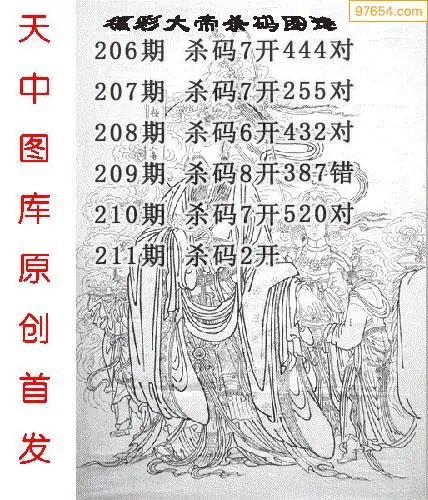 97654.com
福彩大帝杀码图谜
206期 杀码7开444对
207期 杀码7开255对
208期 杀码6开432对
209期 杀码8开387错
210期 杀码7开520对
211期 杀码2开
天中图库原创首发